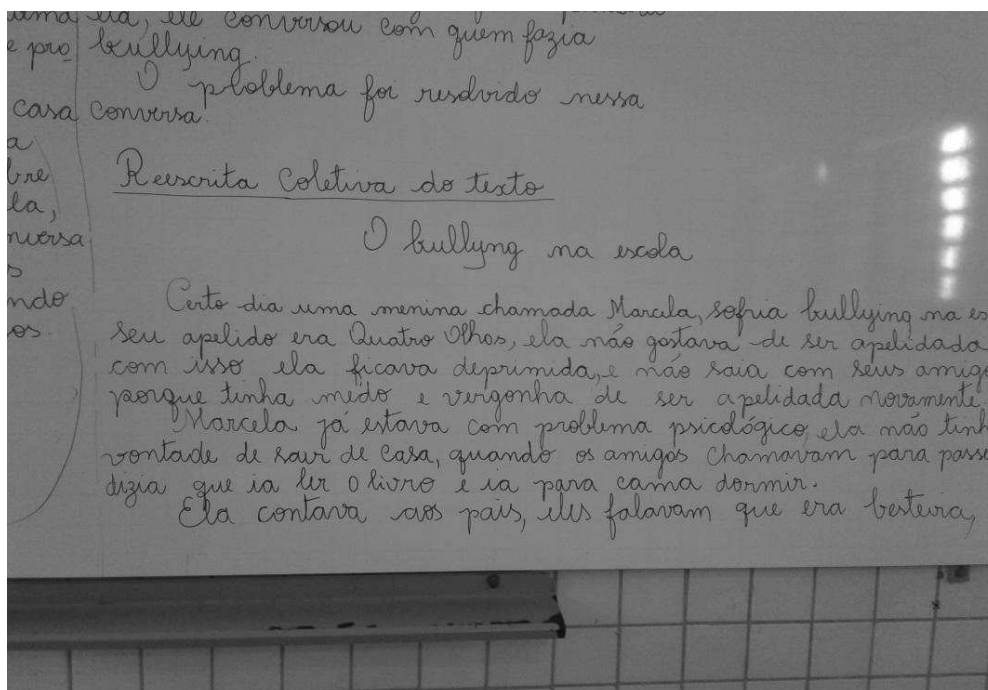 ele conversou com quem fazia
e pro bullying.
O ploblema foi resolvido nessa
casa conversa.
a
bre
la,
nversa
s
ndo
os.
Reescrita Coletiva do texto
O bullyng na escola
Certo dia uma menina chamada Marcela, sofria bullying na es
seu apelido era Quatro Olhos, ela não gostava de ser apelidada
com isso ela ficava deprimida, e não saia com seus amigo
porque tinha medo e vergonha de ser apelidada novamente
Marcela já estava com problema psicológico, ela não tinh
vontade de sair de casa, quando os amigos chamavam para passe
dizia que ia ler o livro e ia para cama dormir.
Ela contava aos pais, eles falavam que era besteira,